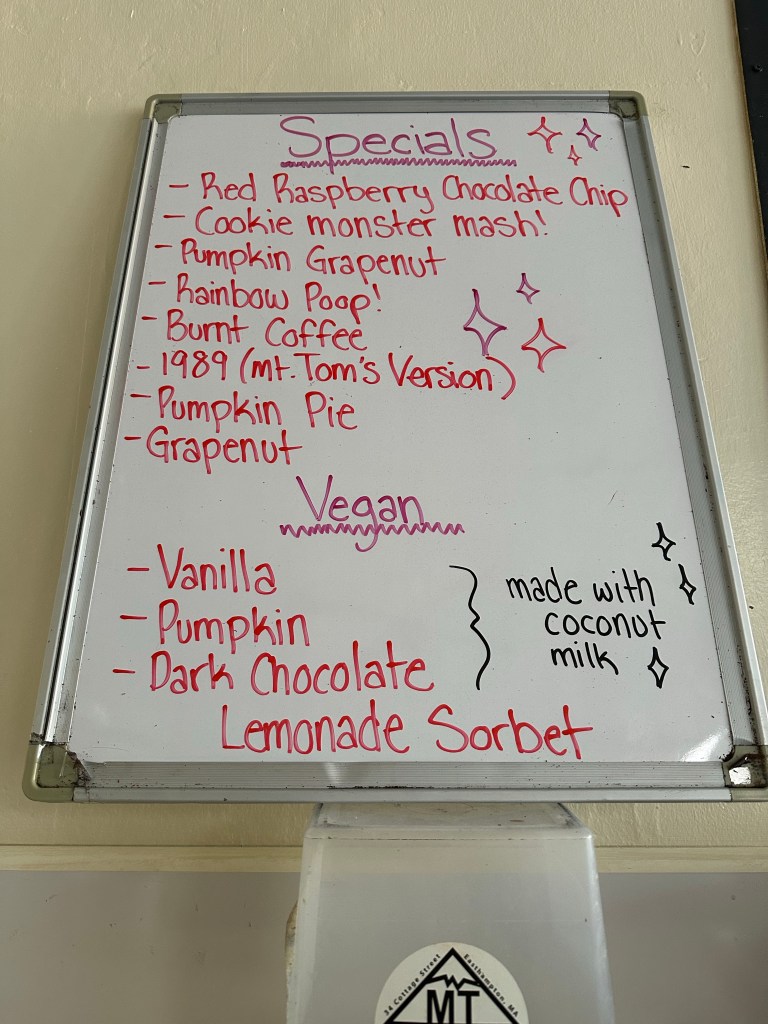 Specials
- Red Raspberry Chocolate Chip
- Cookie monster mash!
- Pumpkin Grapenut
- Rainbow Poop!
- Burnt Coffee
- 1989 (mt. Tom's Version)
- Pumpkin Pie
- Grapenut
Vegan
- Vanilla
- Pumpkin
- Dark Chocolate
made with
coconut
milk
Lemonade Sorbet
34 Cottage Street
Easthampton, MA
MT